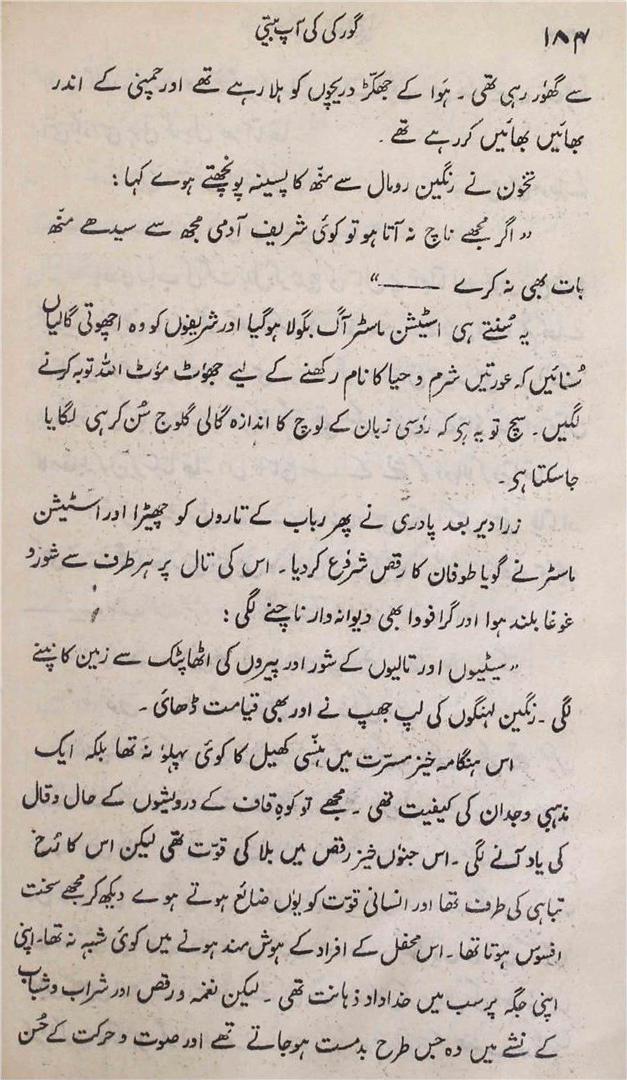 ۱۸۴
گورکی کی آپ بیتی
سے گھور رہی تھی ۔ ہوا کے جھکڑ دریچوں کو ہلا رہے تھے اور چمنی کے اندر
بھائیں بھائیں کر رہے تھے ۔
تخون نے رنگین رومال سے منھ کا پسینہ پونچھتے ہوے کہا :
"اگر مجھے ناچ نہ آتا ہو تو کوئی شریف آدمی مجھ سے سیدھے منھ
بات بھی نہ کرے ———"
یہ سُنتے ہی اسٹیشن ماسٹر آگ بگولا ہوگیا اور شریفوں کو وہ اچھوتی گالیاں
سُنائیں کہ عورتیں شرم و حیا کا نام رکھنے کے لیے جھوٹ موٗٹ اللہ توبہ کرنے
لگیں ۔ سچ تو یہ ہی کہ روٗسی زبان کے لوچ کا اندازہ گالی گلوج سُن کر ہی لگایا
جاسکتا ہی ۔
زرا دیر بعد پادری نے پھر رباب کے تاروں کو چھیڑا اور اسٹیشن
ماسٹر نے گویا طوفان کا رقص شروٗع کردیا ۔ اس کی تال پر ہر طرف سے شور و
غوغا بلند ہوا اور گرافودا بھی دیوانہ وار ناچنے لگی :
"سیٹیوں اور تالیوں کے شور اور پیروں کی اٹھا پٹک سے زمین کانپنے
لگی ۔ رنگین لہنگوں کی لپ جھپ نے اور بھی قیامت ڈھائی ۔
اس ہنگامہ خیز مسرّت میں ہنسی کھیل کا کوئی پہلوٗ نہ تھا بلکہ ایک
مذہبی وجدان کی کیفیت تھی ۔ مجھے تو کوہِ قاف کے درویشوں کے حال و قال
کی یاد آنے لگی ۔ اس جنوں خیز رقص میں بلا کی قوّت تھی لیکن اس کا رُخ
تباہی کی طرف تھا اور انسانی قوّت کو یوٗں ضائع ہوتے ہوے دیکھ کر مجھے سخت
افسوس ہوتا تھا ۔ اس محفل کے افراد کے ہوش مند ہونے میں کوئی شبہ نہ تھا ۔ اپنی
اپنی جگہ پر سب میں خداداد ذہانت تھی ۔ لیکن نغمہ و رقص اور شراب و شباب
کے نشے میں وہ جس طرح بدمست ہوجاتے تھے اور صوت و حرکت کے حُسن